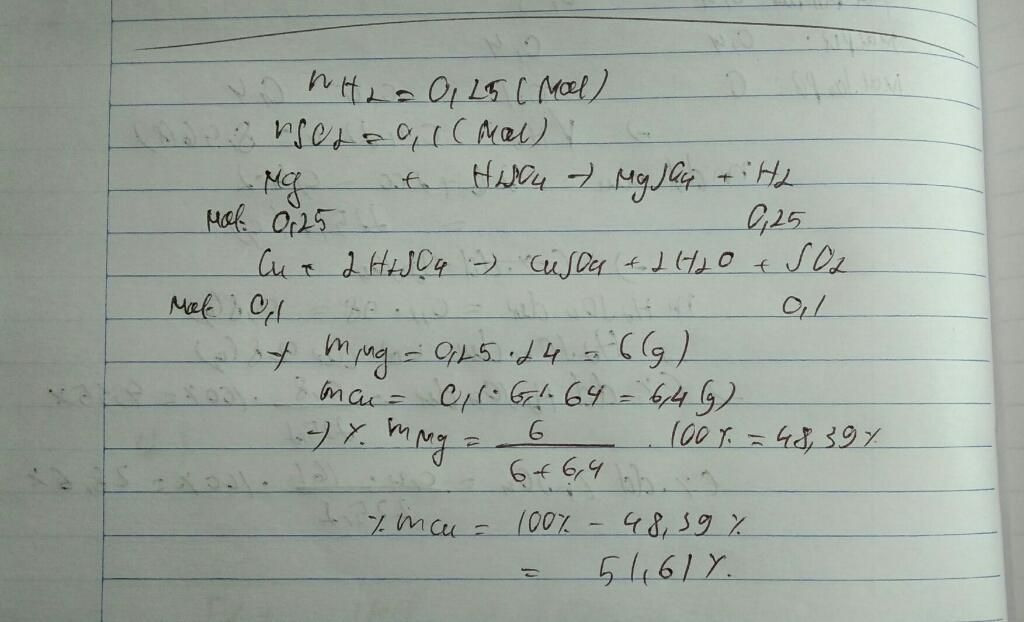 nH2 = 0,25 (Mol)
nSO2 = 0,1 (Mol)
Mg + H2SO4 → MgSO4 + H2
Mol: 0,25 0,25
Cu + 2H2SO4 → CuSO4 + 2H2O + SO2
Mol: 0,1 0,1
→ mMg = 0,25 . 24 = 6(g)
mCu = 0,1 . 64 = 6,4 (g)
→ % mMg = 6 / 6 + 6,4 . 100% = 48,39%
% mCu = 100% - 48,39%
= 51,61%.